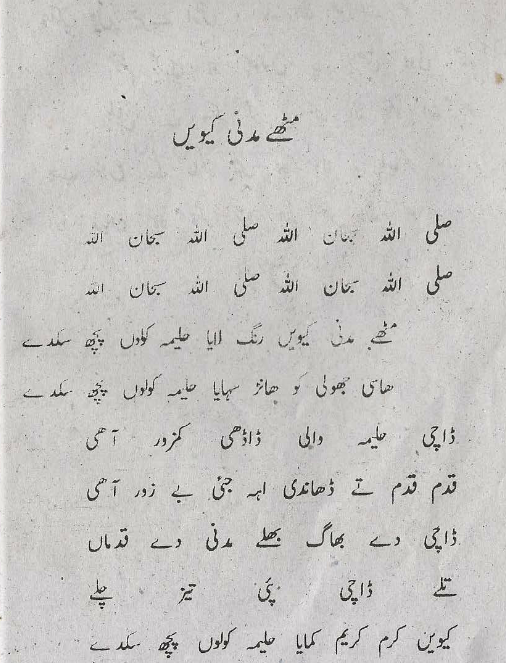 مٹھے مدنی کیویں
صلی اللہ سبحان اللہ صلی اللہ سبحان اللہ
صلی اللہ سبحان اللہ صلی اللہ سبحان اللہ
مٹھے مدنی کیویں رنگ لایا حلیمہ کولوں پچھ سکدے
ھاسی بھولی کو ھانڑ سہایا حلیمہ کولوں پچھ سکدے
ڈاچی حلیمہ والی ڈاڈھی کمزور آھی
قدم قدم تے ڈھاندی اہہ جئی بے زور آھی
ڈاچی دے بھاگ بھلے مدنی دے قدماں
تلے ڈاچی پئی تیز چلے
کیویں کرم کریم کمایا حلیمہ کولوں پچھ سکدے